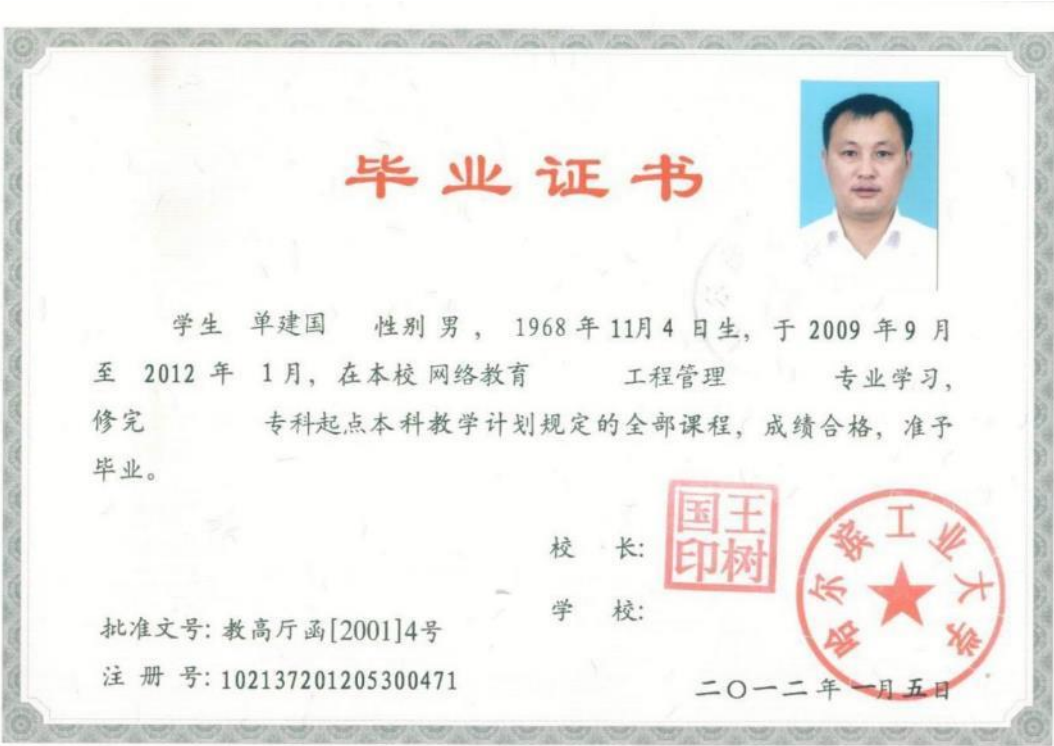 毕业证书
学生 单建国 性别 男， 1968 年 11月 4 日生，于 2009 年 9 月
至 2012 年 1 月，在本校 网络教育 工程管理 专业学习，
修完 专科起点本科教学计划规定的全部课程，成绩合格，准予
毕业。
校 长:
王树国印
学 校:
哈尔滨工业大学
批准文号: 教高厅函[2001]4号
注 册 号: 102137201205300471
二〇一二 年 一月 五日